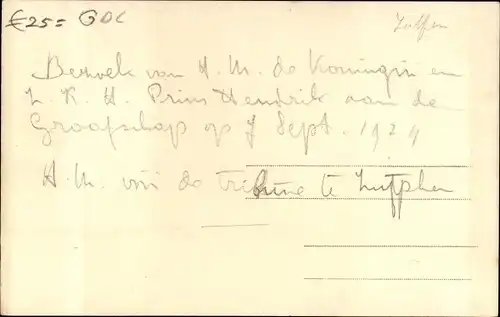 €25= GDL
Zutfen
Bezoek van H. M. de Koningin en
Z. K. H. Prins Hendrik aan de
Graafschap op 7 Sept. 1924
H. M. de tribune te Zutphen